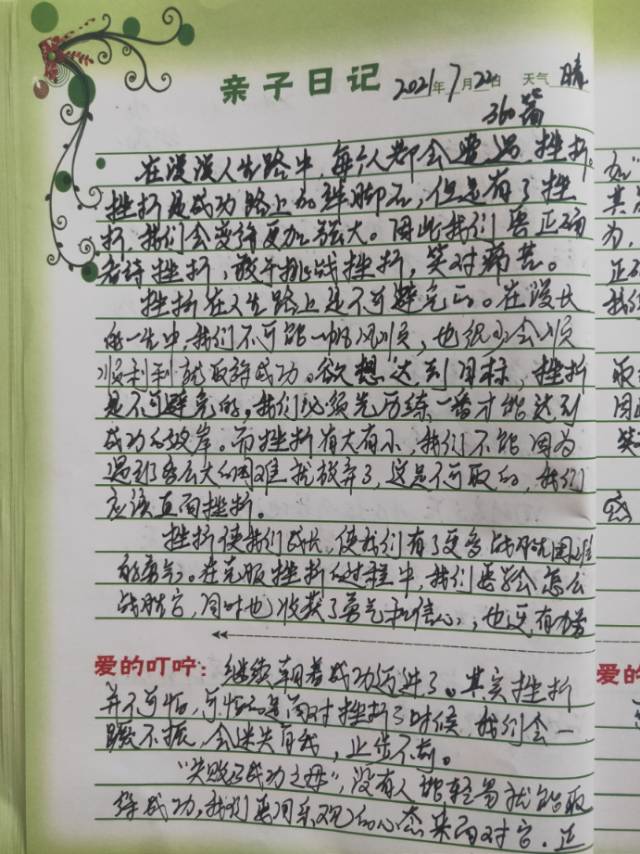 亲子日记 2021年7月22日 天气 晴
360篇
在漫漫人生路中,每个人都会遭遇挫折。
挫折是成功路上的绊脚石,但是有了挫
折,我们会变得更加强大。因此我们要正确
看待挫折,敢于挑战挫折,笑对痛苦。
挫折在人生路上是不可避免的。在漫长
的一生中,我们不可能一帆风顺,也很少会顺
顺利利就取得成功。欲想达到目标,挫折
是不可避免的,我们必须先历练一番才能达到
成功的彼岸。而挫折有大有小,我们不能因为
遇到多么大的困难就放弃了,这是不可取的,我们
应该直面挫折。
挫折使我们成长,使我们有了更多战胜困难
的勇气。在克服挫折的过程中,我们要学会怎么
战胜它,同时也收获了勇气和信心,也更有力量
爱的叮咛:继续朝着成功行进了。其实挫折
并不可怕,可怕的是面对挫折的时候,我们会一
蹶不振,会迷失自我,止步不前。
“失败乃成功之母”,没有人能轻易就能取
得成功,我们要用乐观的心态来面对它,正
如“
其
为,
正确
我们
取
因
笑
爱的